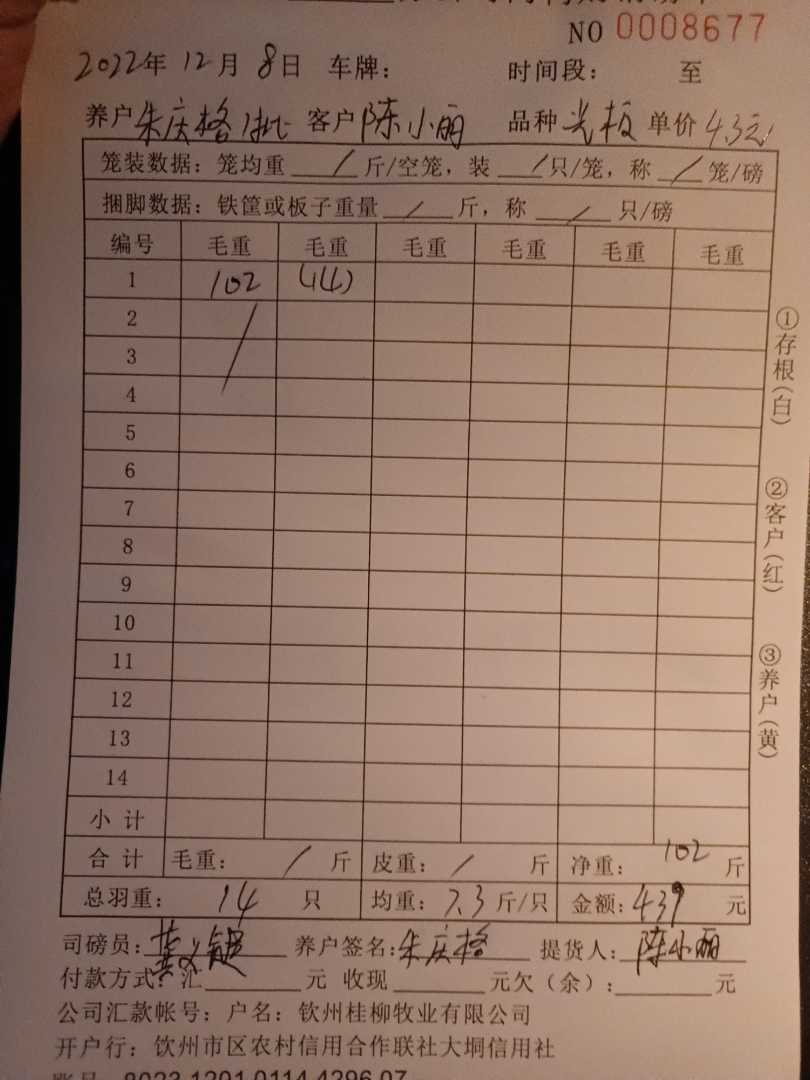 NO 0008677
2022年 12月 8日 车牌： 时间段： 至
养户 朱庆格1批 客户 陈小丽 品种 光板 单价 4.3元
笼装数据：笼均重 / 斤/空笼，装 / 只/笼，称 / 笼/磅
捆脚数据：铁筐或板子重量 / 斤，称 / 只/磅
编号 毛重 毛重 毛重 毛重 毛重 毛重
1 102 (14)
2 /
3
4
5
6
7
8
9
10
11
12
13
14
小 计
合 计 毛重： / 斤 皮重： / 斤 净重： 102 斤
总羽重： 14 只 均重： 7.3 斤/只 金额： 439 元
司磅员： 养户签名：朱庆格 提货人：陈小丽
付款方式：汇 元 收现 元欠（余）： 元
公司汇款帐号：户名：钦州桂柳牧业有限公司
开户行：钦州市区农村信用合作联社大垌信用社
①存根（白）
②客户（红）
③养户（黄）